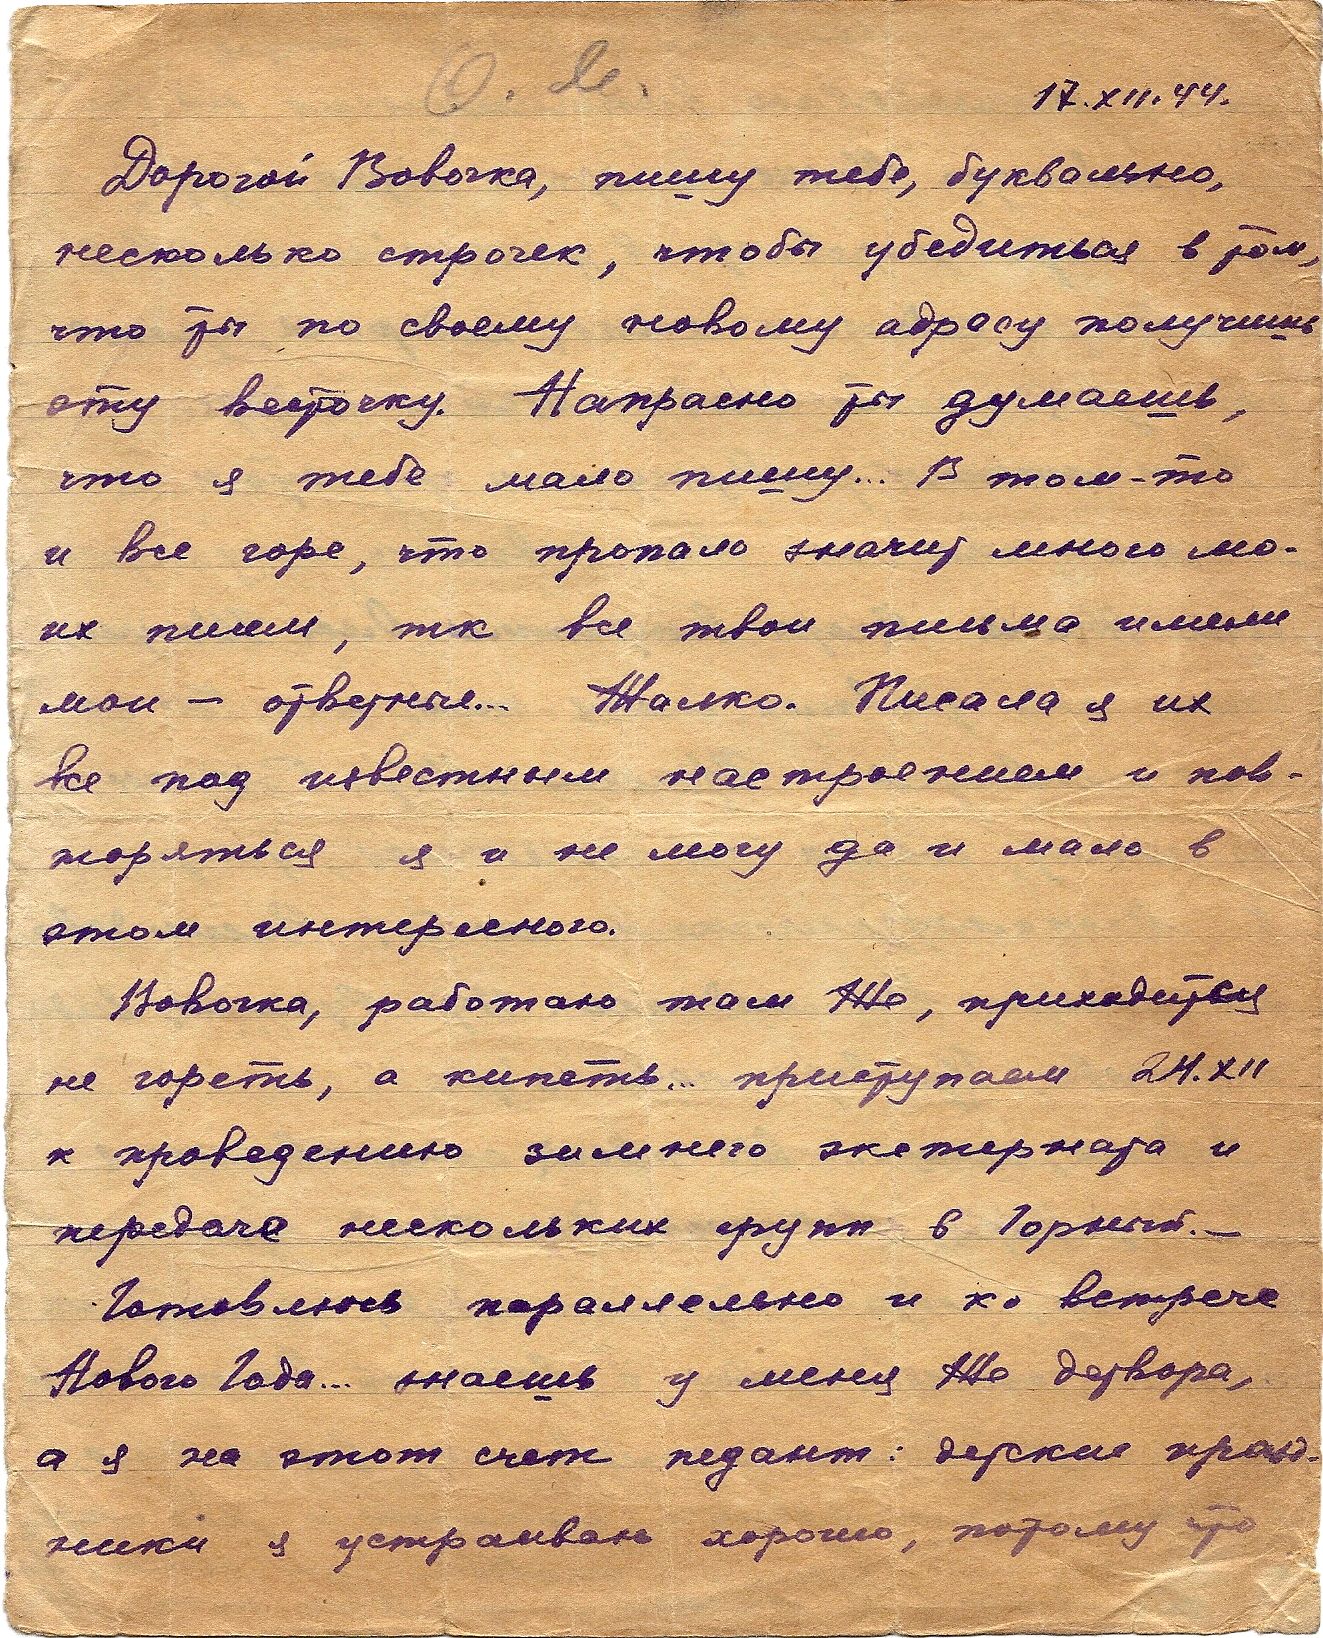 О. Я.
17.XII.44.
Дорогой Вовочка, пишу тебе, буквально,
несколько строчек, чтобы убедиться в том,
что ты по своему новому адресу получишь
эту весточку. Напрасно ты думаешь,
что я тебе мало пишу... В том-то
и все горе, что пропало значит много мо-
их писем, тк все твои письма имели
мои — ответные... Жалко. Писала я их
все под известным настроением и пов-
торяться я и не могу да и мало в
этом интересного.
Вовочка, работаю там же, приходиться
не гореть, а кипеть... приступаем 24.XII
к проведению зимнего экстерната и
передаче нескольких групп в Горный. —
Готовлюсь параллельно и к встрече
Нового Года... знаешь у меня же детвора,
а я на этот счет педант: детские празд-
ники я устраиваю хорошо, потому что